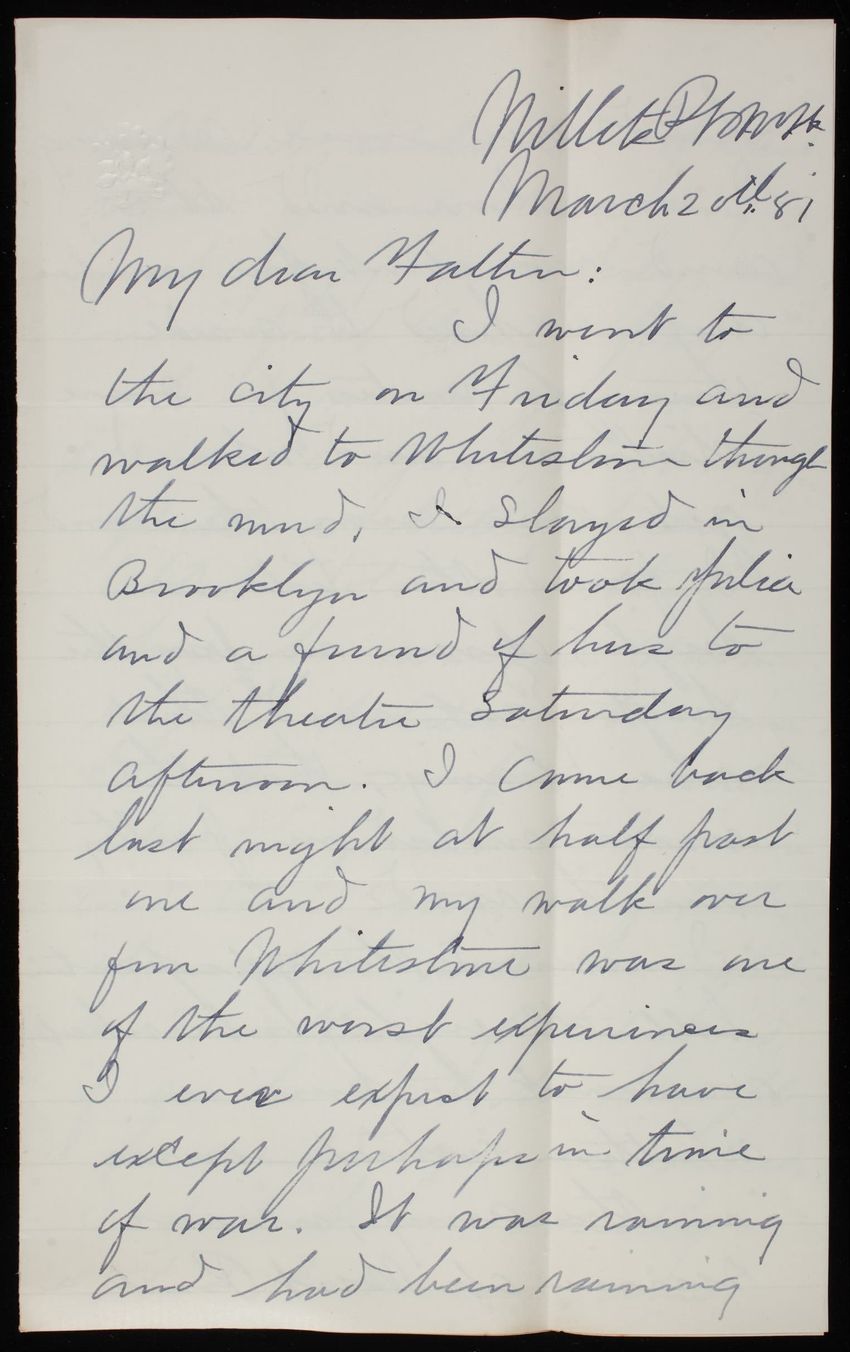 Willets Pt. N.Y.
March 20th. 81
My dear Father:
I went to
the city on Friday and
walked to Whitestone through
the mud, I stayed in
Brooklyn and took Julia
and a friend of hers to
the theatre Saturday
afternoon. I came back
last night at half past
one and my walk over
from Whitestone was one
of the worst experiences
I ever expect to have
except perhaps in time
of war. It was raining
and had been raining